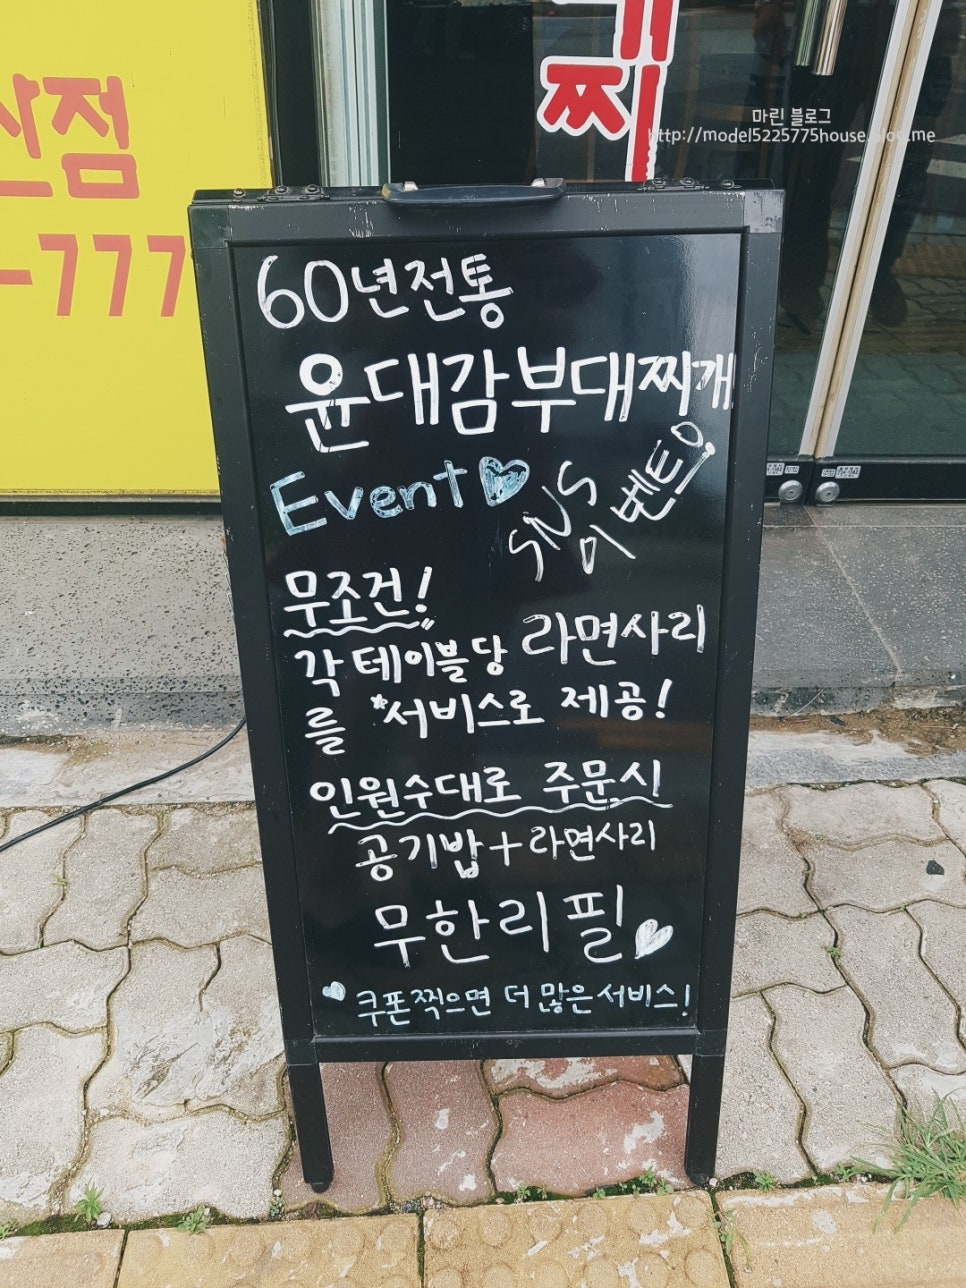 찌
산점
-777
마린 블로그
60년전통
윤대감부대찌개
Event
SNS
이벤트!
무조건!
각 테이블당 라면사리
를 *서비스로 제공!
인원수대로 주문시
공기밥+라면사리
무한리필
쿠폰찍으면 더 많은 서비스!